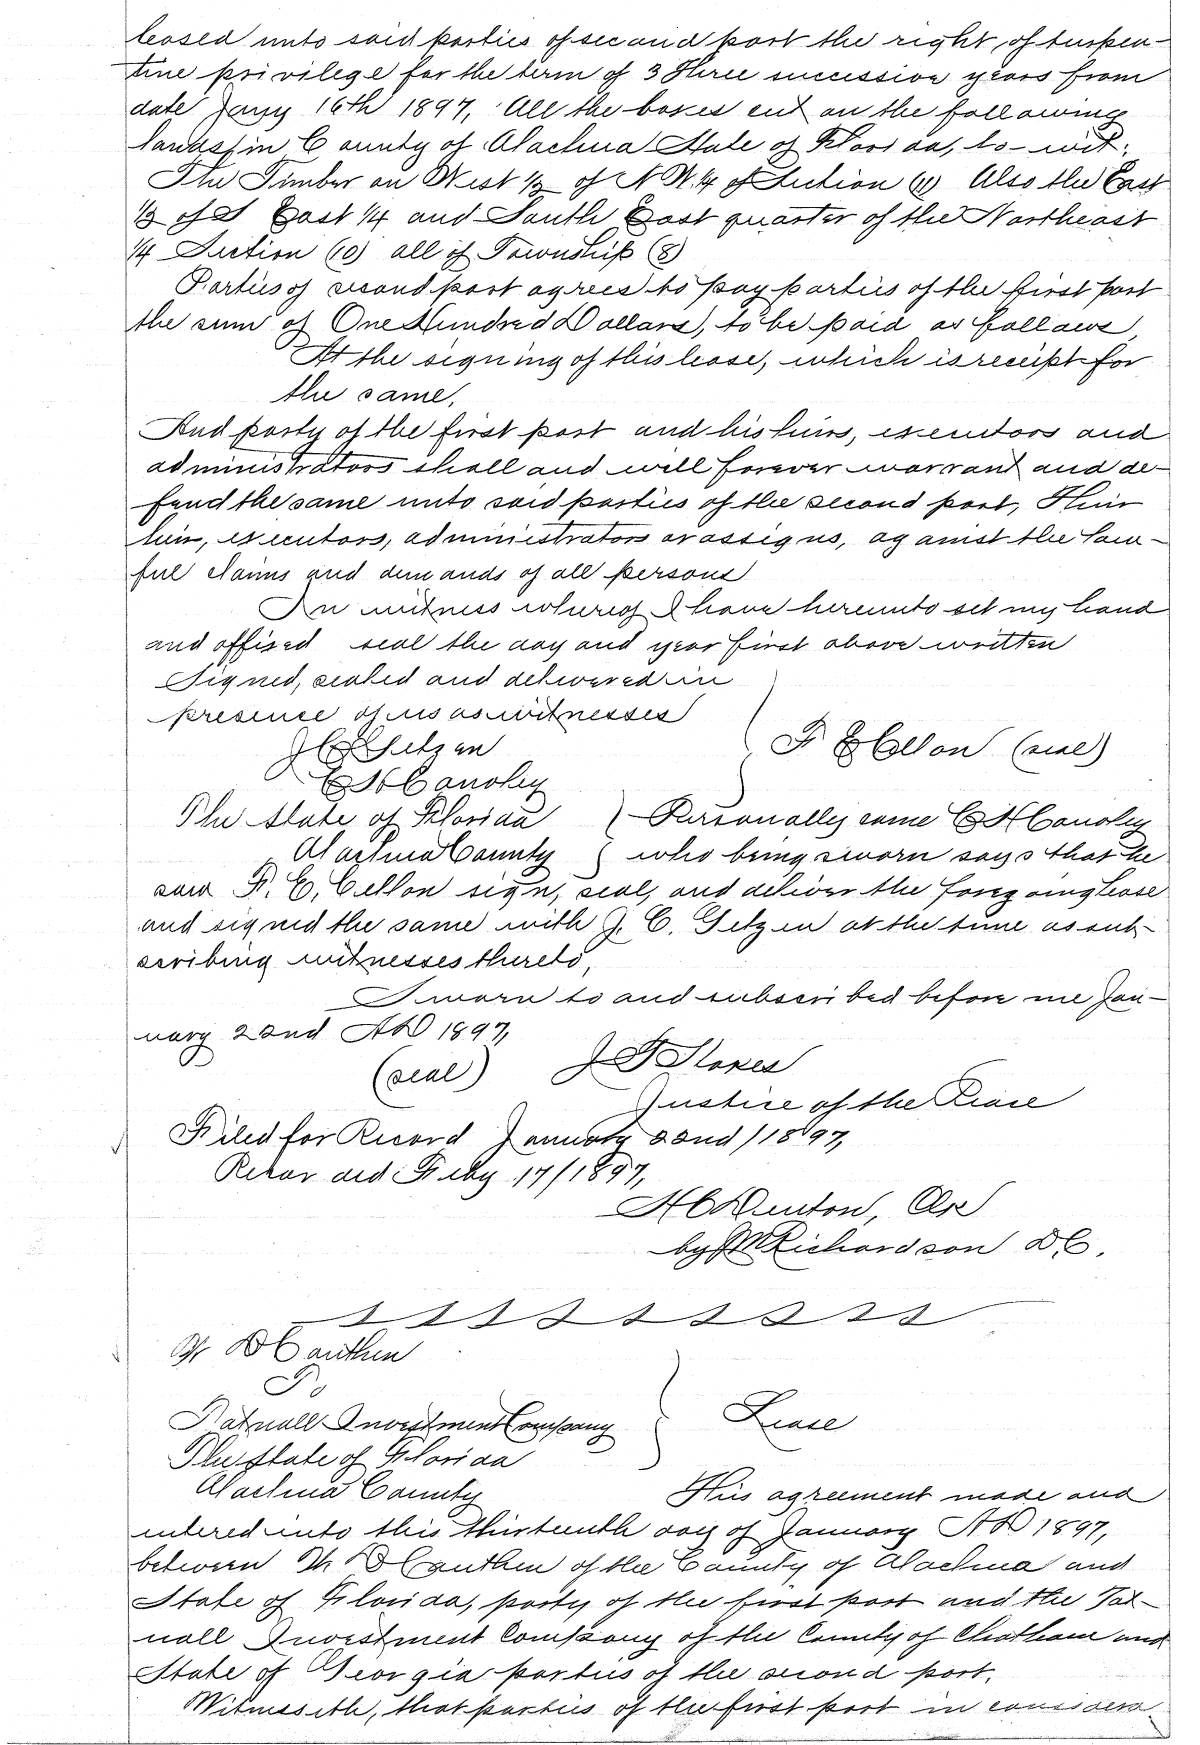 leased unto said parties of second part the right of turpen-
tine privilege for the term of 3 Three succession years from
date Jany 16th 1897, All the boxes cut on the following
lands, in County of Alachua State of Florida, to-wit:
The Timber on West 1/2 of N.W. 1/4 of Section (11) Also the East
1/2 of S East 1/4 and South East quarter of the Northeast
1/4 Section (10) all of Township (8)
Parties of second part agrees to pay parties of the first part
the sum of One Hundred Dollars, to be paid as follows,
At the signing of this lease, which is receipt for
the same.
And party of the first part and his heirs, executors and
administrators shall and will forever warrant and de-
fend the same unto said parties of the second part, Their
heirs, executors, administrators or assigns, against the law-
ful claims and demands of all persons
In witness whereof I have hereunto set my hand
and affixed seal the day and year first above written
Signed, sealed and delivered in
presence of us as witnesses
J C Getzen
F E Cellon (seal)
E H Canoley
The State of Florida } Personally came E H Canoley
Alachua County } who being sworn says that he
saw F. E. Cellon sign, seal, and deliver the foregoing lease
and signed the same with J. C. Getzen at the time as sub-
scribing witnesses thereto,
Sworn to and subscribed before me Jan-
uary 22nd AD 1897,
(seal) J F Stokes
Justice of the Peace
Filed for Record January 22nd/1897,
Recorded Feby 17/1897,
H C Denton, Clk
by Richardson D.C.
W D Cauthen
To
Tatnall Investment Company } Lease
The State of Florida
Alachua County This agreement made and
entered into this thirteenth day of January AD 1897,
between W D Cauthen of the County of Alachua and
State of Florida, party of the first part and the Tat-
nall Investment Company of the County of Chatham and
State of Georgia parties of the second part.
Witnesseth, that parties of the first part in considera-